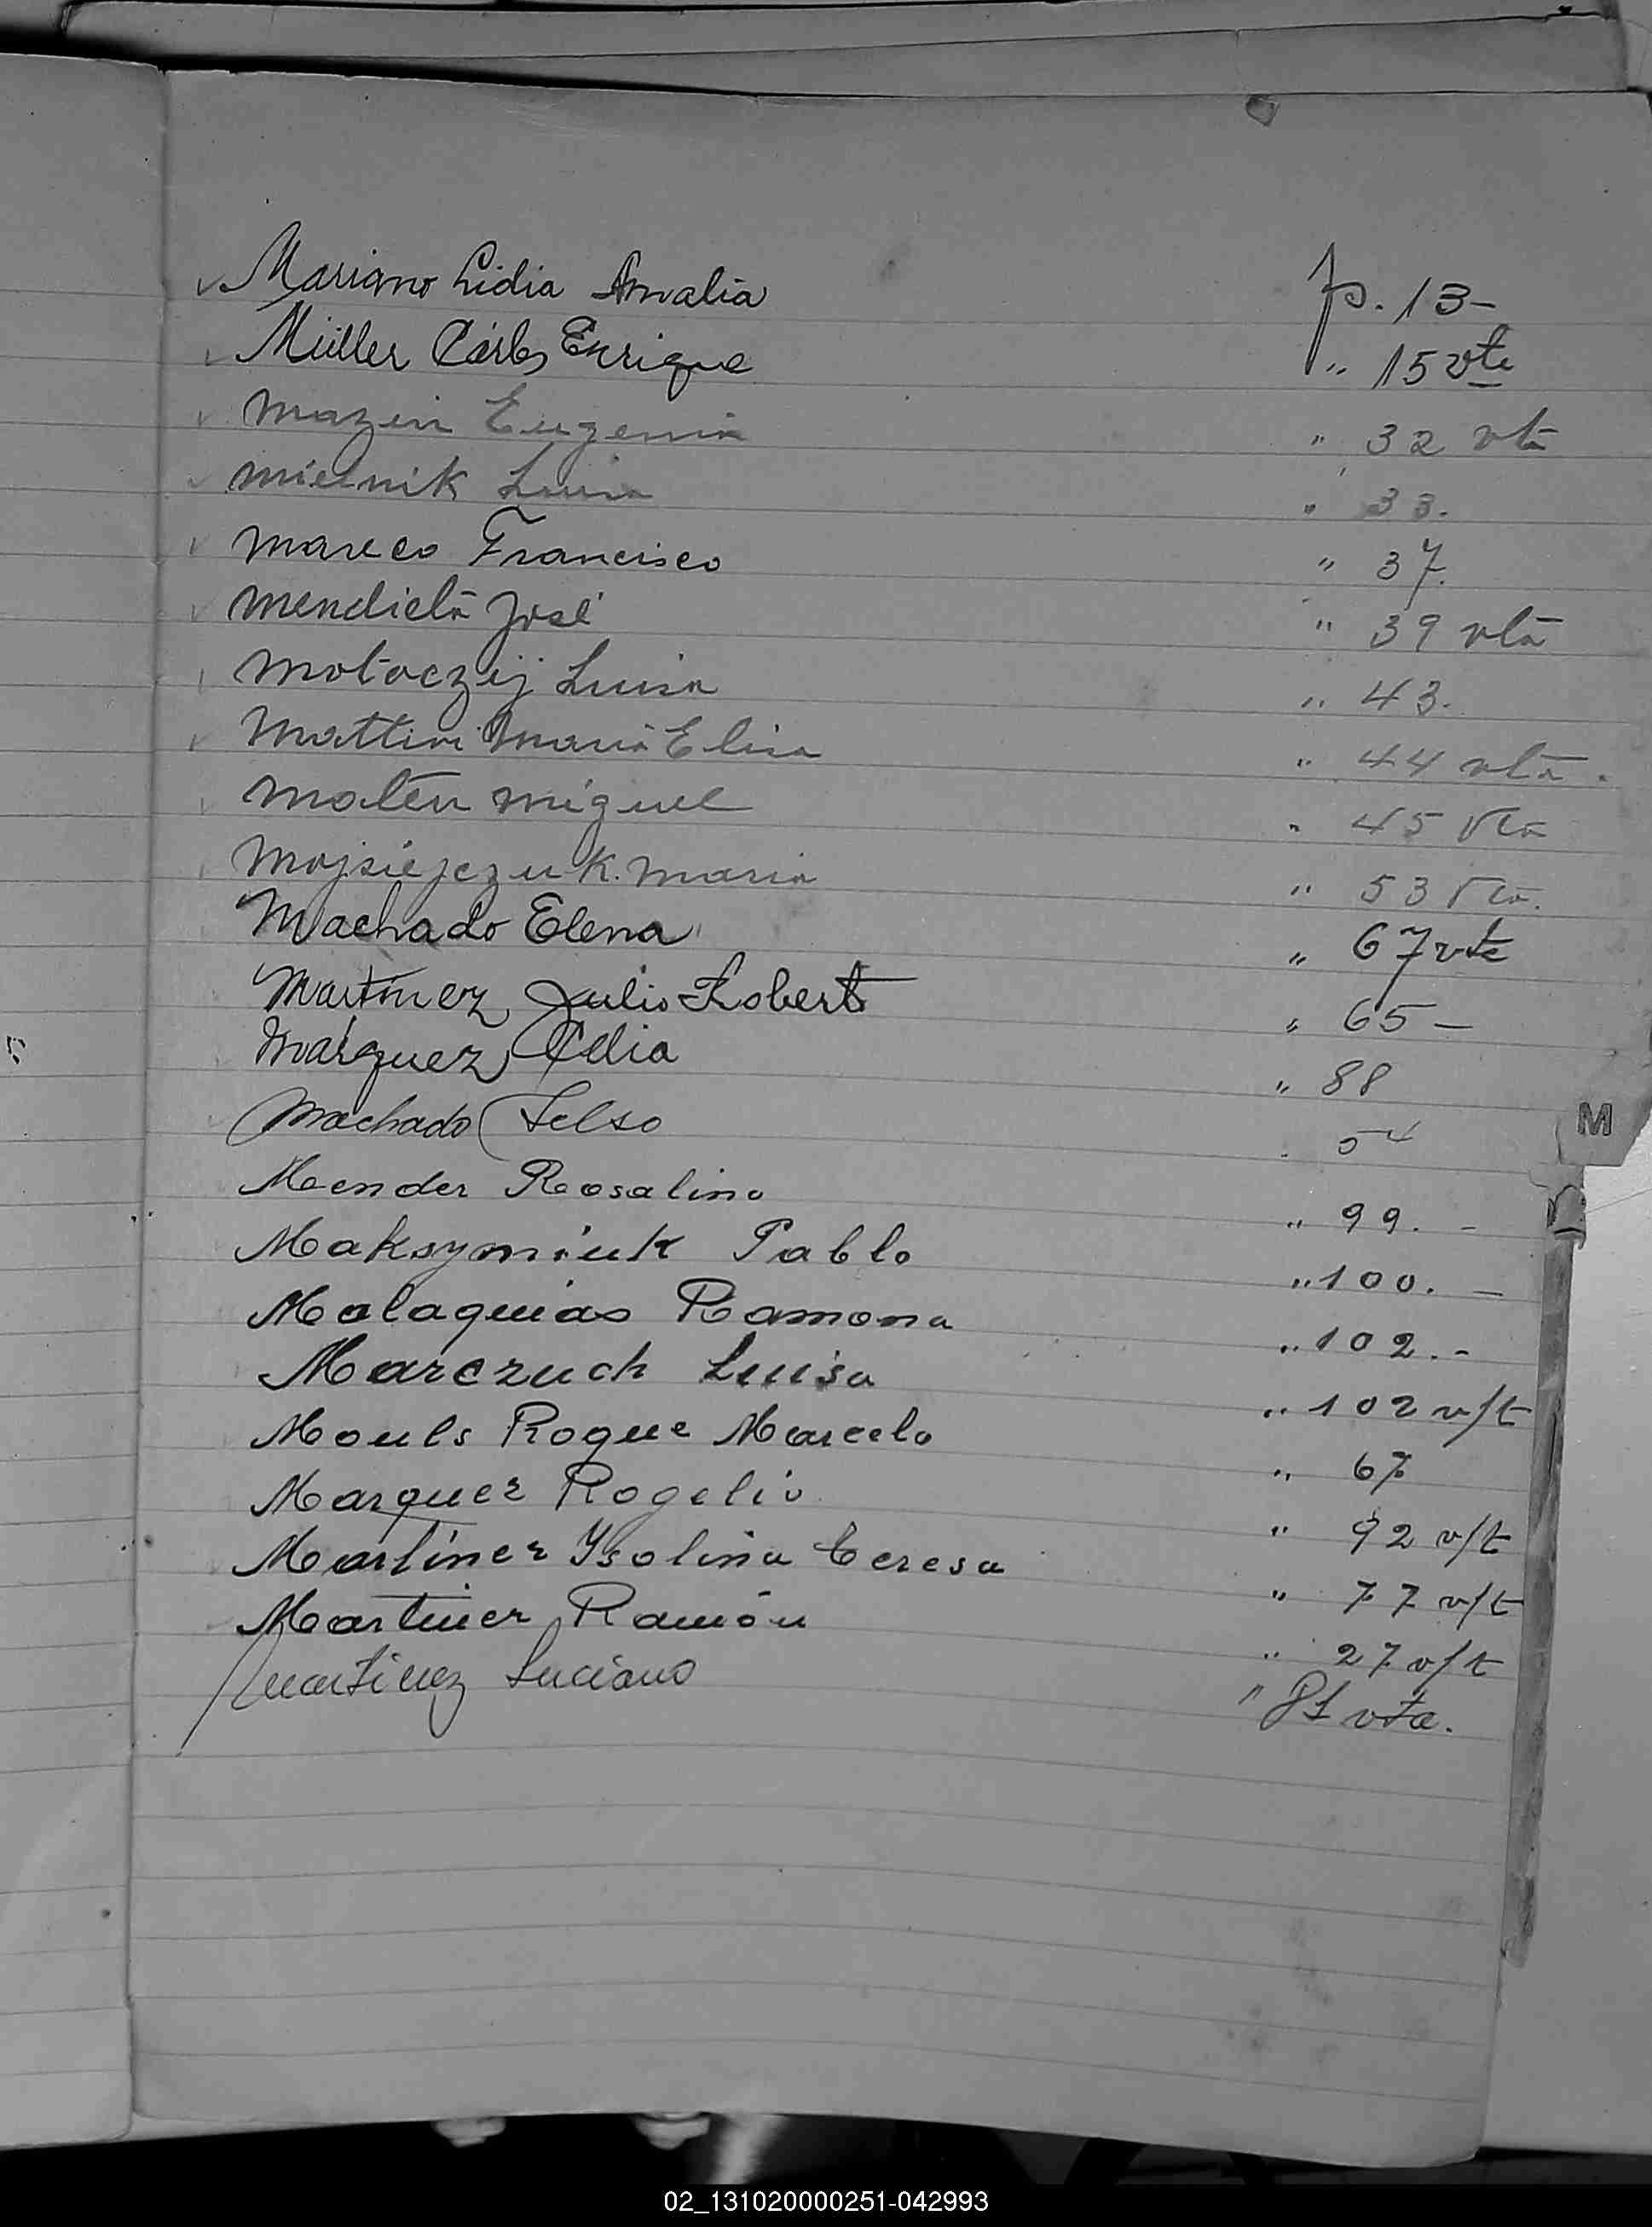 Mariano Lidia Amalia p. 13-
Müller Carlos Enrique " 15 vte
Mazin Eugenia " 32 vta
Mielnik Luisa " 33.
Mareco Francisco " 37.
Mendieta José " 39 vta
Motoczij Luisa " 43.
Mattivi Maria Elisa " 44 vta.
Mateu Miguel " 45 vta
Mojsiejczuk Maria " 53 vta.
Machado Elena " 67 vte
Martinez Julio Roberto " 65 -
Márquez Celia " 88
Machado Selso 54
Mender Rosalino " 99. -
Maksymiuk Pablo " 100. -
Malaquias Ramona " 102. -
Marczuch Luisa " 102 v/t
Mouls Roque Marcelo " 67
Marquez Rogelio " 92 v/t
M
Martinez Ysolina Teresa " 77 v/t
Martinez Ramón " 27 v/t
Martinez Luciano " 81 vta.
02_131020000251-042993